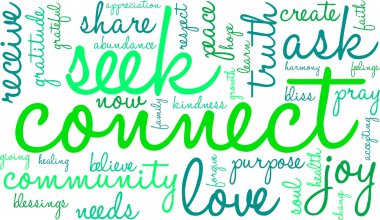 receive
gratitude
grateful
appreciation
share
abundance
respect
peace
hope
learn
truth
create
faith
ask
harmony
feelings
seek
now
family
kindness
growth
bliss
pray
connect
accepting
giving
healing
believe
community
blessings
needs
forgive
love
purpose
soul
health
joy
change